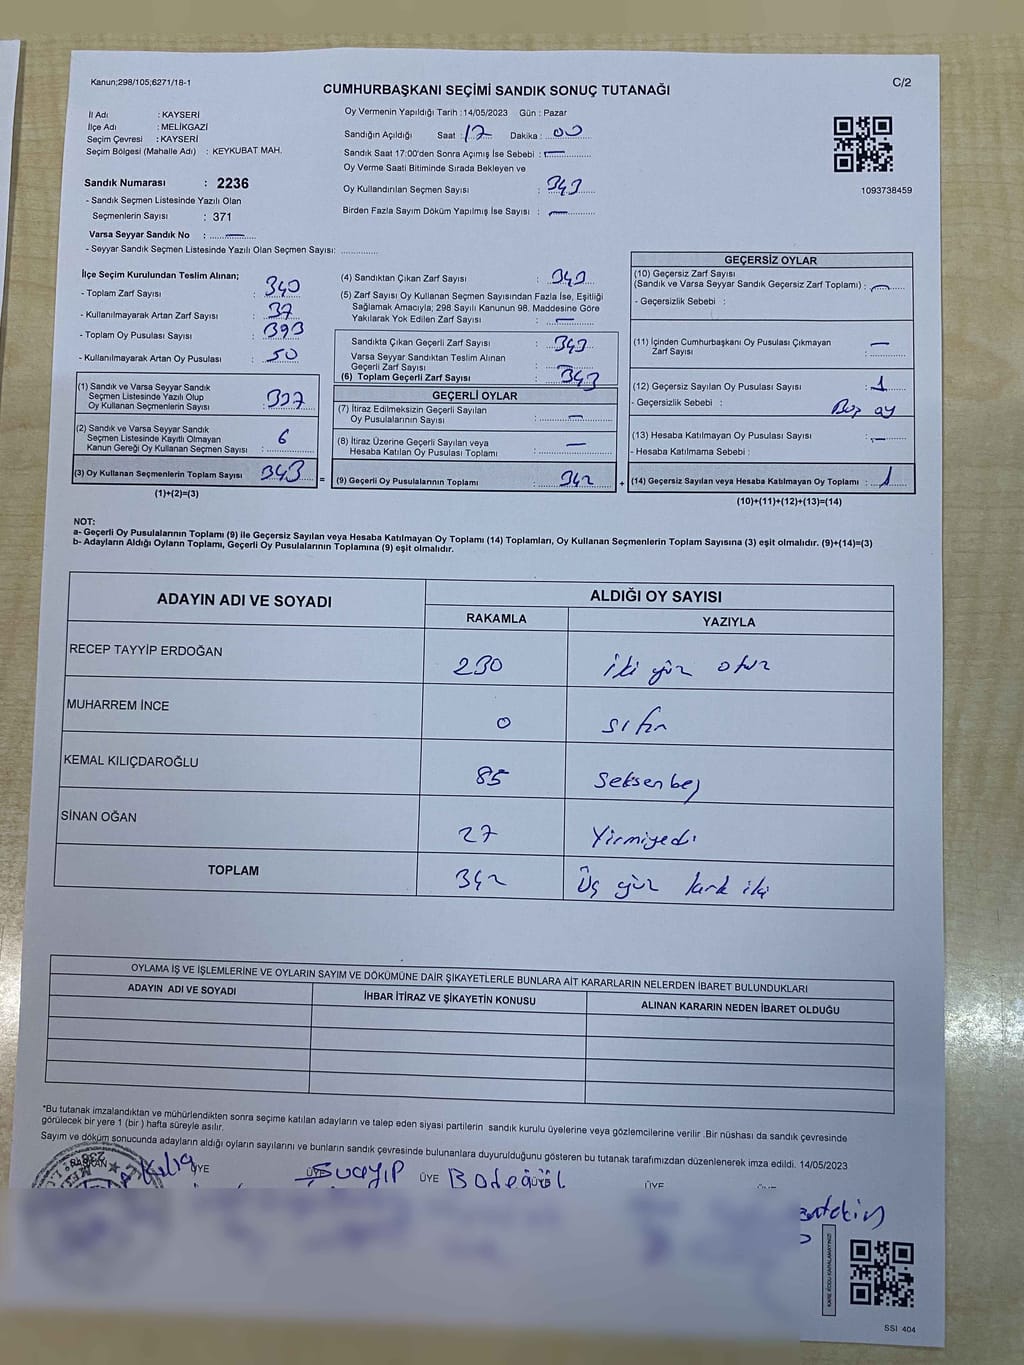 Kanun;298/105;6271/18-1
C/2
CUMHURBAŞKANI SEÇİMİ SANDIK SONUÇ TUTANAĞI
İl Adı : KAYSERİ
İlçe Adı : MELİKGAZİ
Seçim Çevresi : KAYSERİ
Seçim Bölgesi (Mahalle Adı) : KEYKUBAT MAH.
Sandık Numarası : 2236
- Sandık Seçmen Listesinde Yazılı Olan
Seçmenlerin Sayısı : 371
Varsa Seyyar Sandık No : —
- Seyyar Sandık Seçmen Listesinde Yazılı Olan Seçmen Sayısı:
Oy Vermenin Yapıldığı Tarih :14/05/2023 Gün : Pazar
Sandığın Açıldığı Saat : 17 Dakika : 00
Sandık Saat 17:00'den Sonra Açımış İse Sebebi : —
Oy Verme Saati Bitiminde Sırada Bekleyen ve
Oy Kullandırılan Seçmen Sayısı : 343
Birden Fazla Sayım Döküm Yapılmış İse Sayısı : —
1093738459
İlçe Seçim Kurulundan Teslim Alınan;
- Toplam Zarf Sayısı :
- Kullanılmayarak Artan Zarf Sayısı : 37
- Toplam Oy Pusulası Sayısı : 393
- Kullanılmayarak Artan Oy Pusulası : 50
(1) Sandık ve Varsa Seyyar Sandık
Seçmen Listesinde Yazılı Olup
Oy Kullanan Seçmenlerin Sayısı : 337
(2) Sandık ve Varsa Seyyar Sandık
Seçmen Listesinde Kayıtlı Olmayan
Kanun Gereği Oy Kullanan Seçmen Sayısı : 6
(3) Oy Kullanan Seçmenlerin Toplam Sayısı 343 =
(1)+(2)=(3)
(4) Sandıktan Çıkan Zarf Sayısı : 343
(5) Zarf Sayısı Oy Kullanan Seçmen Sayısından Fazla İse, Eşitliği
Sağlamak Amacıyla; 298 Sayılı Kanunun 98. Maddesine Göre
Yakılarak Yok Edilen Zarf Sayısı : —
Sandıkta Çıkan Geçerli Zarf Sayısı : 343
Varsa Seyyar Sandıktan Teslim Alınan
Geçerli Zarf Sayısı :
(6) Toplam Geçerli Zarf Sayısı : 343
GEÇERLİ OYLAR
(7) İtiraz Edilmeksizin Geçerli Sayılan
Oy Pusulalarının Sayısı : —
(8) İtiraz Üzerine Geçerli Sayılan veya
Hesaba Katılan Oy Pusulası Toplamı : —
(9) Geçerli Oy Pusulalarının Toplamı : 342 +
GEÇERSİZ OYLAR
(10) Geçersiz Zarf Sayısı
(Sandık ve Varsa Seyyar Sandık Geçersiz Zarf Toplamı) : —
- Geçersizlik Sebebi :
(11) İçinden Cumhurbaşkanı Oy Pusulası Çıkmayan
Zarf Sayısı : —
(12) Geçersiz Sayılan Oy Pusulası Sayısı : 1
- Geçersizlik Sebebi : Boş oy
(13) Hesaba Katılmayan Oy Pusulası Sayısı : —
- Hesaba Katılmama Sebebi :
(14) Geçersiz Sayılan veya Hesaba Katılmayan Oy Toplamı : 1
(10)+(11)+(12)+(13)=(14)
NOT:
a- Geçerli Oy Pusulalarının Toplamı (9) ile Geçersiz Sayılan veya Hesaba Katılmayan Oy Toplamı (14) Toplamları, Oy Kullanan Seçmenlerin Toplam Sayısına (3) eşit olmalıdır. (9)+(14)=(3)
b- Adayların Aldığı Oyların Toplamı, Geçerli Oy Pusulalarının Toplamına (9) eşit olmalıdır.
ADAYIN ADI VE SOYADI ALDIĞI OY SAYISI
RAKAMLA YAZIYLA
RECEP TAYYİP ERDOĞAN 230 iki yüz otuz
MUHARREM İNCE 0 sıfır
KEMAL KILIÇDAROĞLU 85 Seksenbeş
SİNAN OĞAN 27 Yirmiyedi
TOPLAM 342 Üç yüz kırk iki
OYLAMA İŞ VE İŞLEMLERİNE VE OYLARIN SAYIM VE DÖKÜMÜNE DAİR ŞİKAYETLERLE BUNLARA AİT KARARLARIN NELERDEN İBARET BULUNDUKLARI
ADAYIN ADI VE SOYADI İHBAR İTİRAZ VE ŞİKAYETİN KONUSU ALINAN KARARIN NEDEN İBARET OLDUĞU
*Bu tutanak imzalandıktan ve mühürlendikten sonra seçime katılan adayların ve talep eden siyasi partilerin sandık kurulu üyelerine veya gözlemcilerine verilir .Bir nüshası da sandık çevresinde
görülecek bir yere 1 (bir ) hafta süreyle asılır.
Sayım ve döküm sonucunda adayların aldığı oyların sayılarını ve bunların sandık çevresinde bulunanlara duyurulduğunu gösteren bu tutanak tarafımızdan düzenlenerek imza edildi. 14/05/2023
BAŞKAN ÜYE ÜYE ÜYE ÜYE ÜYE
SSI 404